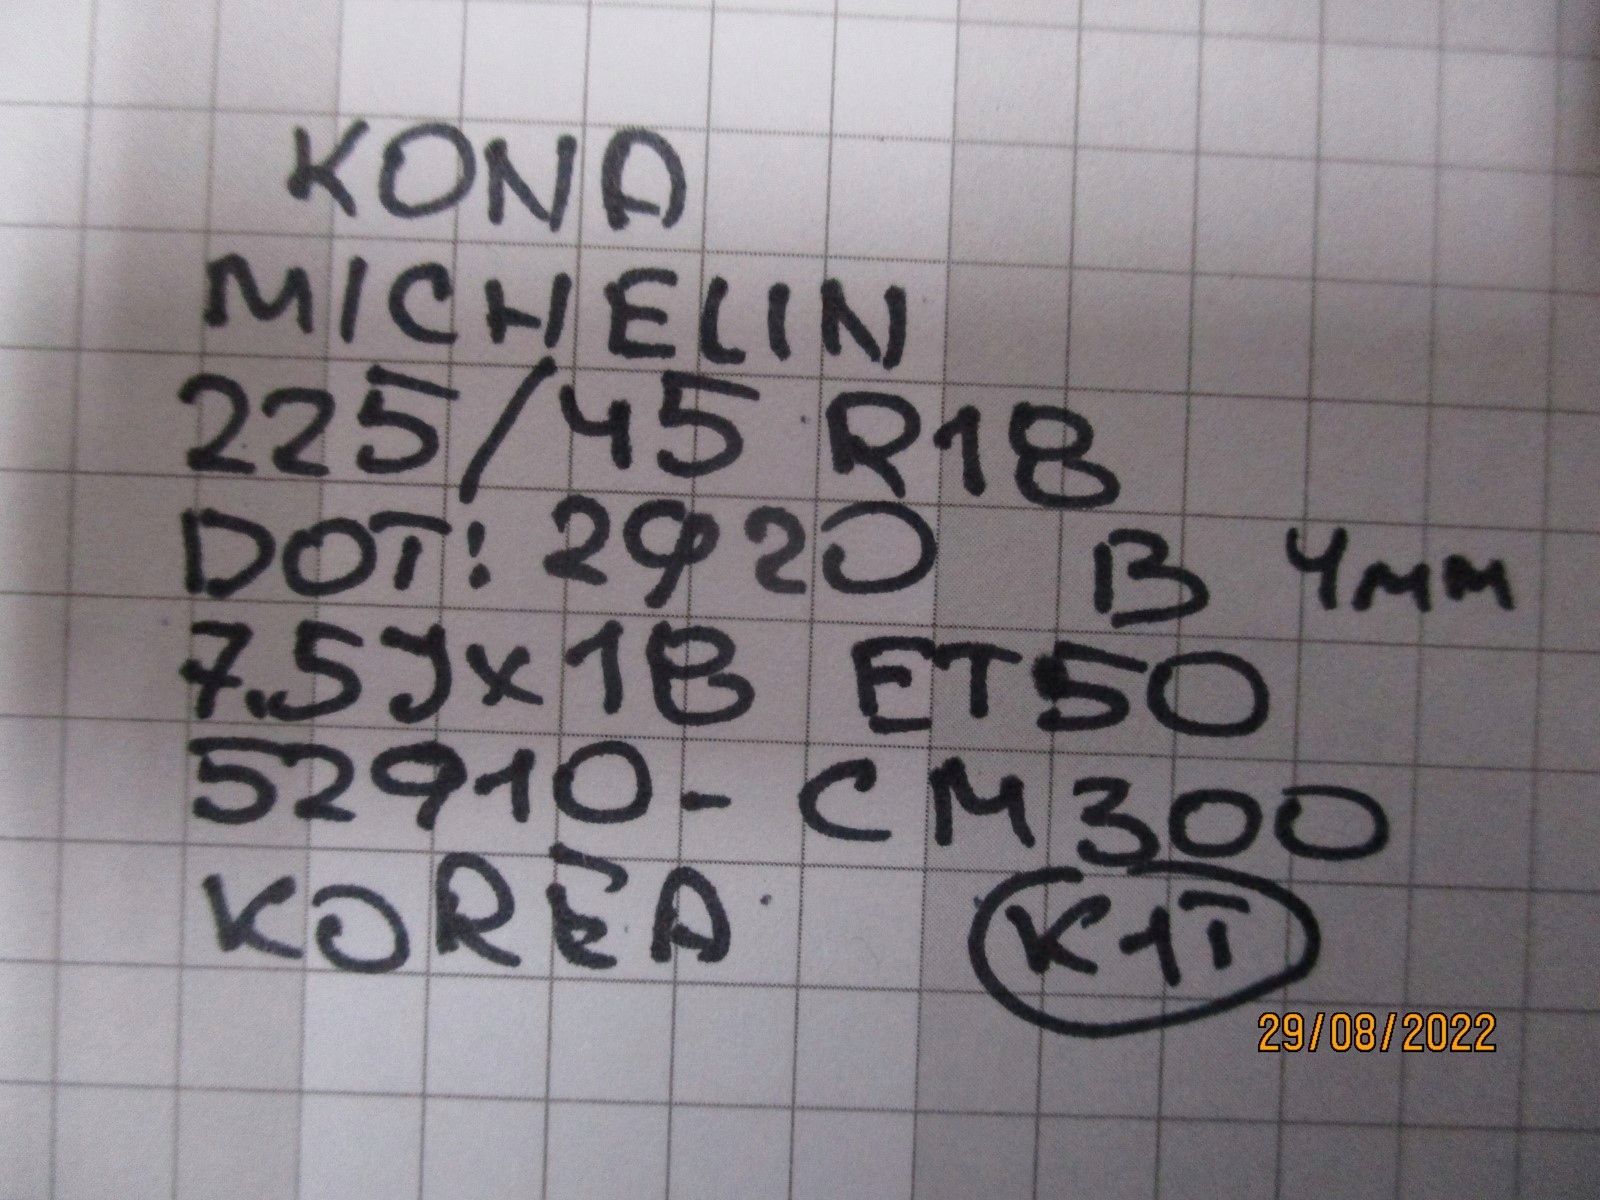 KONA
MICHELIN
225/45 R18
DOT: 2920 B 4mm
7.5Jx18 ET50
52910-CM300
KOREA K1T
29/08/2022